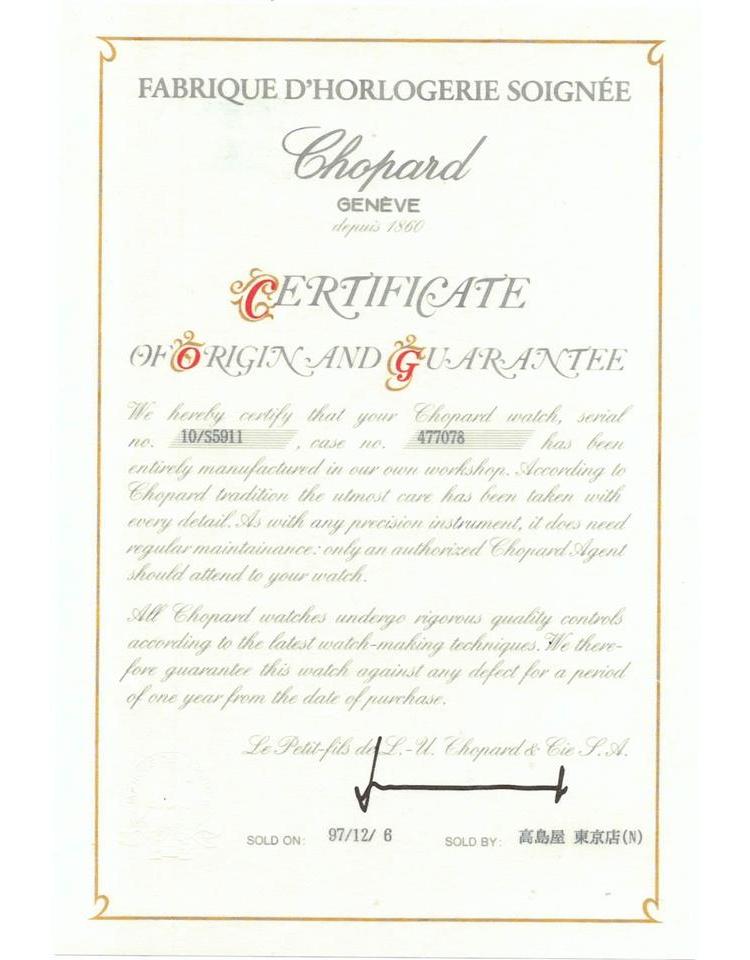 FABRIQUE D'HORLOGERIE SOIGNÉE
Chopard
GENÈVE
depuis 1860
CERTIFICATE
OF ORIGIN AND GUARANTEE
We hereby certify that your Chopard watch, serial
no. 10/S5911 , case no. 477078 has been
entirely manufactured in our own workshop. According to
Chopard tradition the utmost care has been taken with
every detail. As with any precision instrument, it does need
regular maintainance: only an authorized Chopard Agent
should attend to your watch.
All Chopard watches undergo rigorous quality controls
according to the latest watch-making techniques. We there-
fore guarantee this watch against any defect for a period
of one year from the date of purchase.
Le Petit-fils de L.-U. Chopard & Cie S.A.
SOLD ON: 97/12/ 6 SOLD BY: 高島屋 東京店(N)